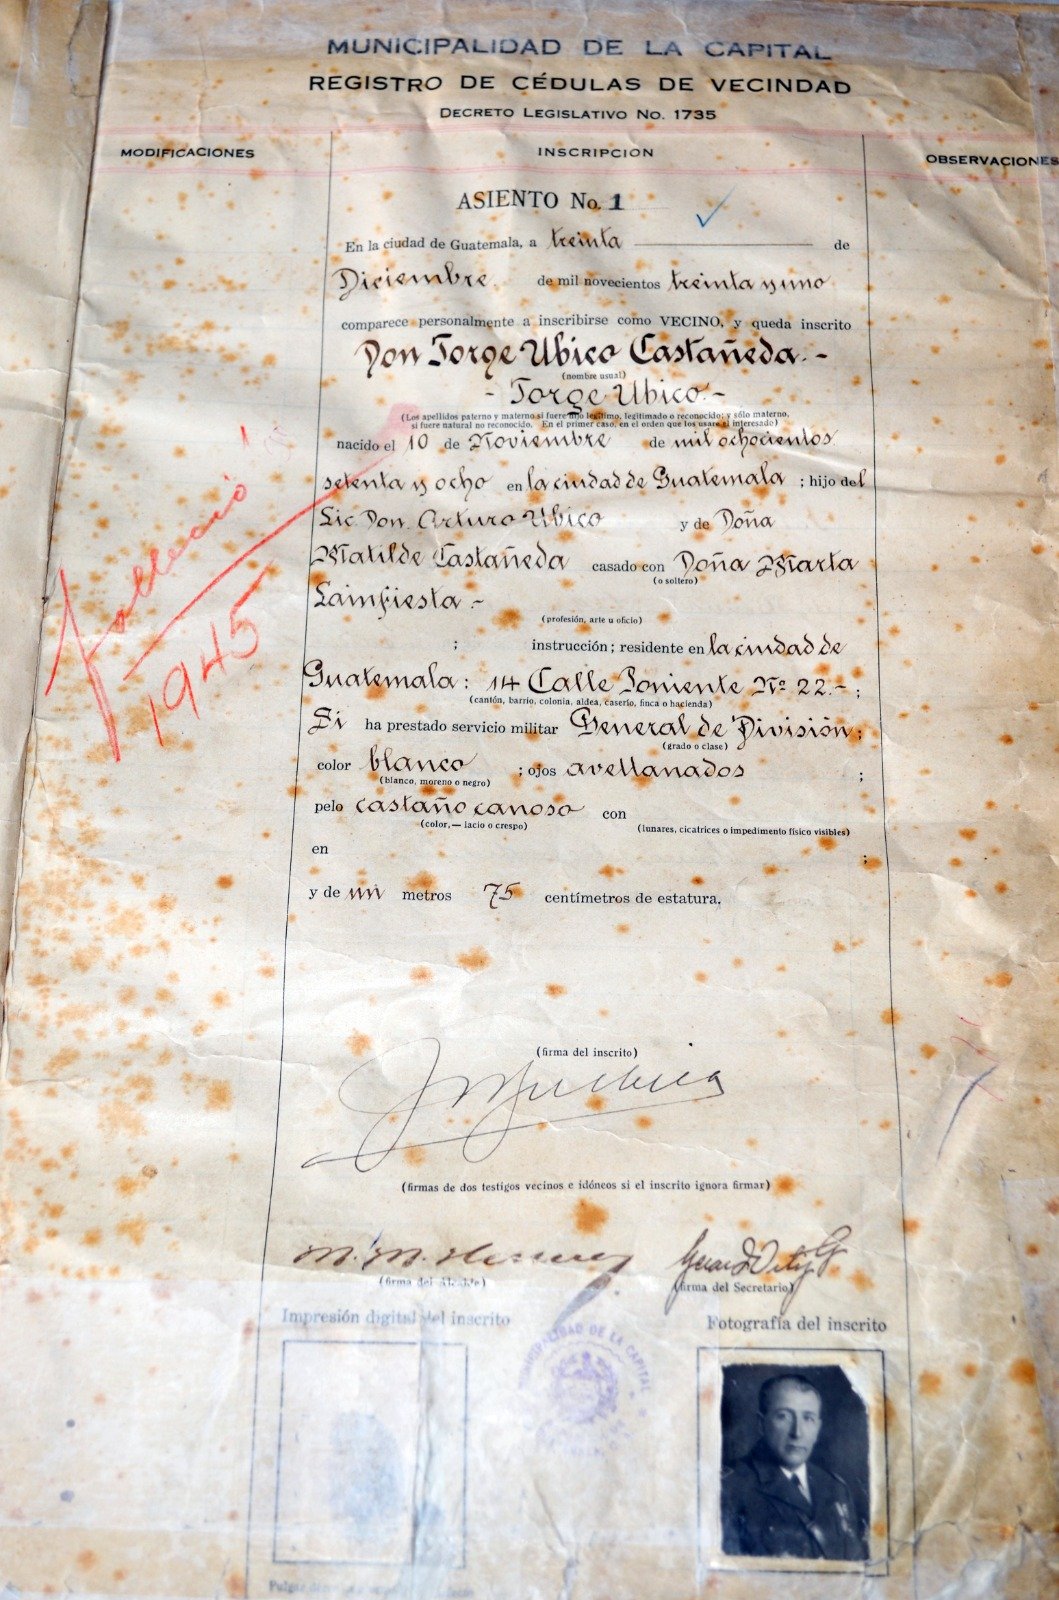 MUNICIPALIDAD DE LA CAPITAL
REGISTRO DE CÉDULAS DE VECINDAD
DECRETO LEGISLATIVO No. 1735
MODIFICACIONES
INSCRIPCION
OBSERVACIONES
ASIENTO No. 1
En la ciudad de Guatemala, a treinta de
Diciembre de mil novecientos treinta y uno
comparece personalmente a inscribirse como VECINO, y queda inscrito
Don Jorge Ubico Castañeda.-
(nombre usual)
- Jorge Ubico.-
(Los apellidos paterno y materno si fuere hijo legítimo, legitimado o reconocido; y sólo materno,
si fuere natural no reconocido. En el primer caso, en el orden que los usare el interesado)
nacido el 10 de Noviembre de mil ochocientos
setenta y ocho en la ciudad de Guatemala ; hijo del
Lic Don. Arturo Ubico y de Doña
Matilde Castañeda casado con Doña Marta
(o soltero)
Lainfiesta.-
(profesión, arte u oficio)
; instrucción; residente en la ciudad de
Guatemala: 14 Calle Poniente Nº 22.- ;
(cantón, barrio, colonia, aldea, caserío, finca o hacienda)
Si ha prestado servicio militar General de División;
(grado o clase)
color blanco ; ojos avellanados ;
(blanco, moreno o negro)
pelo castaño canoso con
(color,— lacio o crespo)
(lunares, cicatrices o impedimento físico visibles)
en ;
y de un metros 75 centímetros de estatura.
falleció
1945
(firma del inscrito)
(firmas de dos testigos vecinos e idóneos si el inscrito ignora firmar)
(firma del Alcalde)
(firma del Secretario)
Impresión digital del inscrito
Fotografía del inscrito
MUNICIPALIDAD DE LA CAPITAL